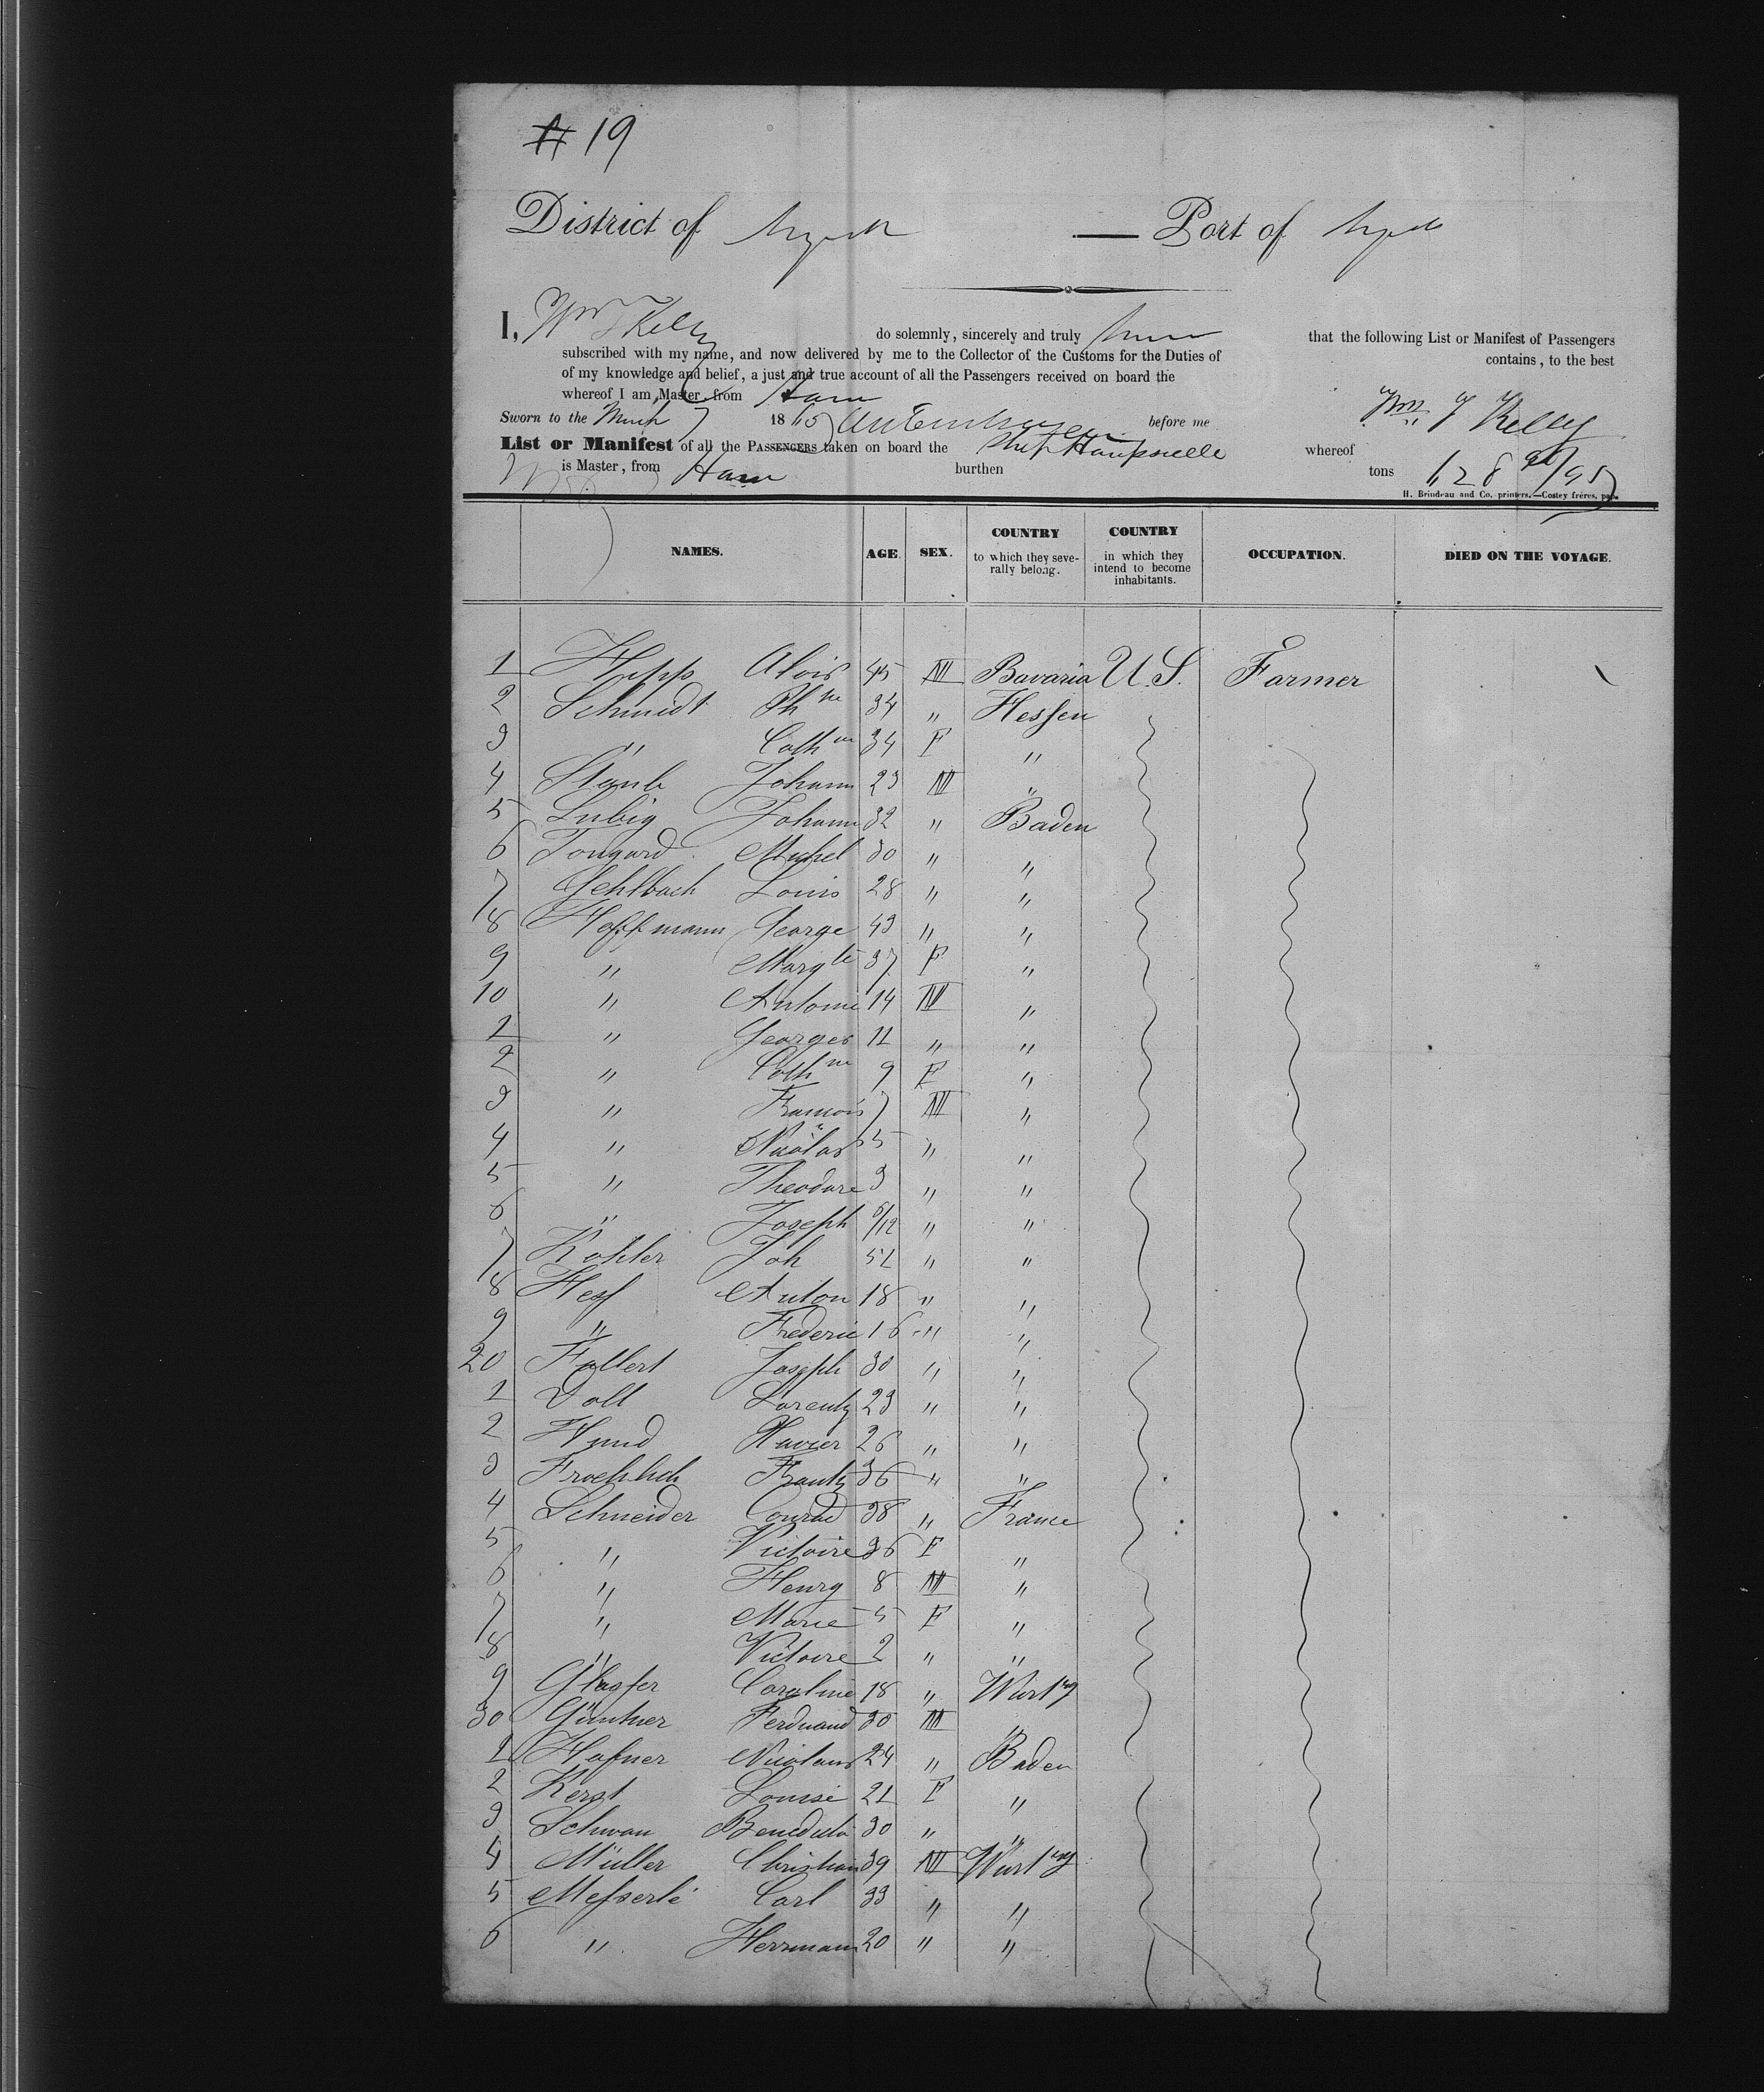 # 19
District of — Port of
I, Wm J Kelly do solemnly, sincerely and truly that the following List or Manifest of Passengers
subscribed with my name, and now delivered by me to the Collector of the Customs for the Duties of
of my knowledge and belief, a just and true account of all the Passengers received on board the contains, to the best
whereof I am Master, from Havre
Sworn to the March 7 1865 before me Wm J Kelly
List or Manifest of all the PASSENGERS taken on board the Ship whereof
is Master, from Havre burthen tons
H. Brindeau and Co. printers.—Costey frères,
NAMES. AGE. SEX. COUNTRY to which they seve-rally belong. COUNTRY in which they intend to become inhabitants. OCCUPATION. DIED ON THE VOYAGE.
1 Hepp Alois 45 M Bavaria U.S. Farmer
2 Schmidt Ph ne 34 " Hessen
3 " Cath ne 34 F "
4 Staub Johann 23 M "
5 Johann 32 " Baden
6 Michel 30 " "
7 Gehlbach Louis 28 " "
8 Hoffmann George 43 " "
9 " Marg te 37 F "
10 " Antoine 14 M "
1 " Georges 11 " "
2 " Cath ne 9 F "
3 " Francois 7 M "
4 " Nicolas 5 " "
5 " Theodore 3 " "
6 " Joseph 6/12 " "
7 Kohler Joh 51 " "
8 Hess Anton 18 " "
9 " Frederic 16 " "
20 Fallert Joseph 30 " "
1 Doll Lorentz 23 " "
2 Hund Xavier 26 " "
3 Froehlich Frantz 36 " "
4 Schneider Conrad 38 " France
5 " Victoire 36 F "
6 " Henry 8 M "
7 " Marie 5 F "
8 " Victoire 2 " "
9 Glasser Caroline 18 " Wurt rg
30 Günther Ferdinand 30 M "
1 Hafner Nicolaus 24 " Baden
2 Kerst Louise 21 F "
3 Schwan Benedicta 30 " "
4 Müller Christian 39 M Würt rg
5 Messerlé Carl 33 " "
6 " Herrmann 20 " "